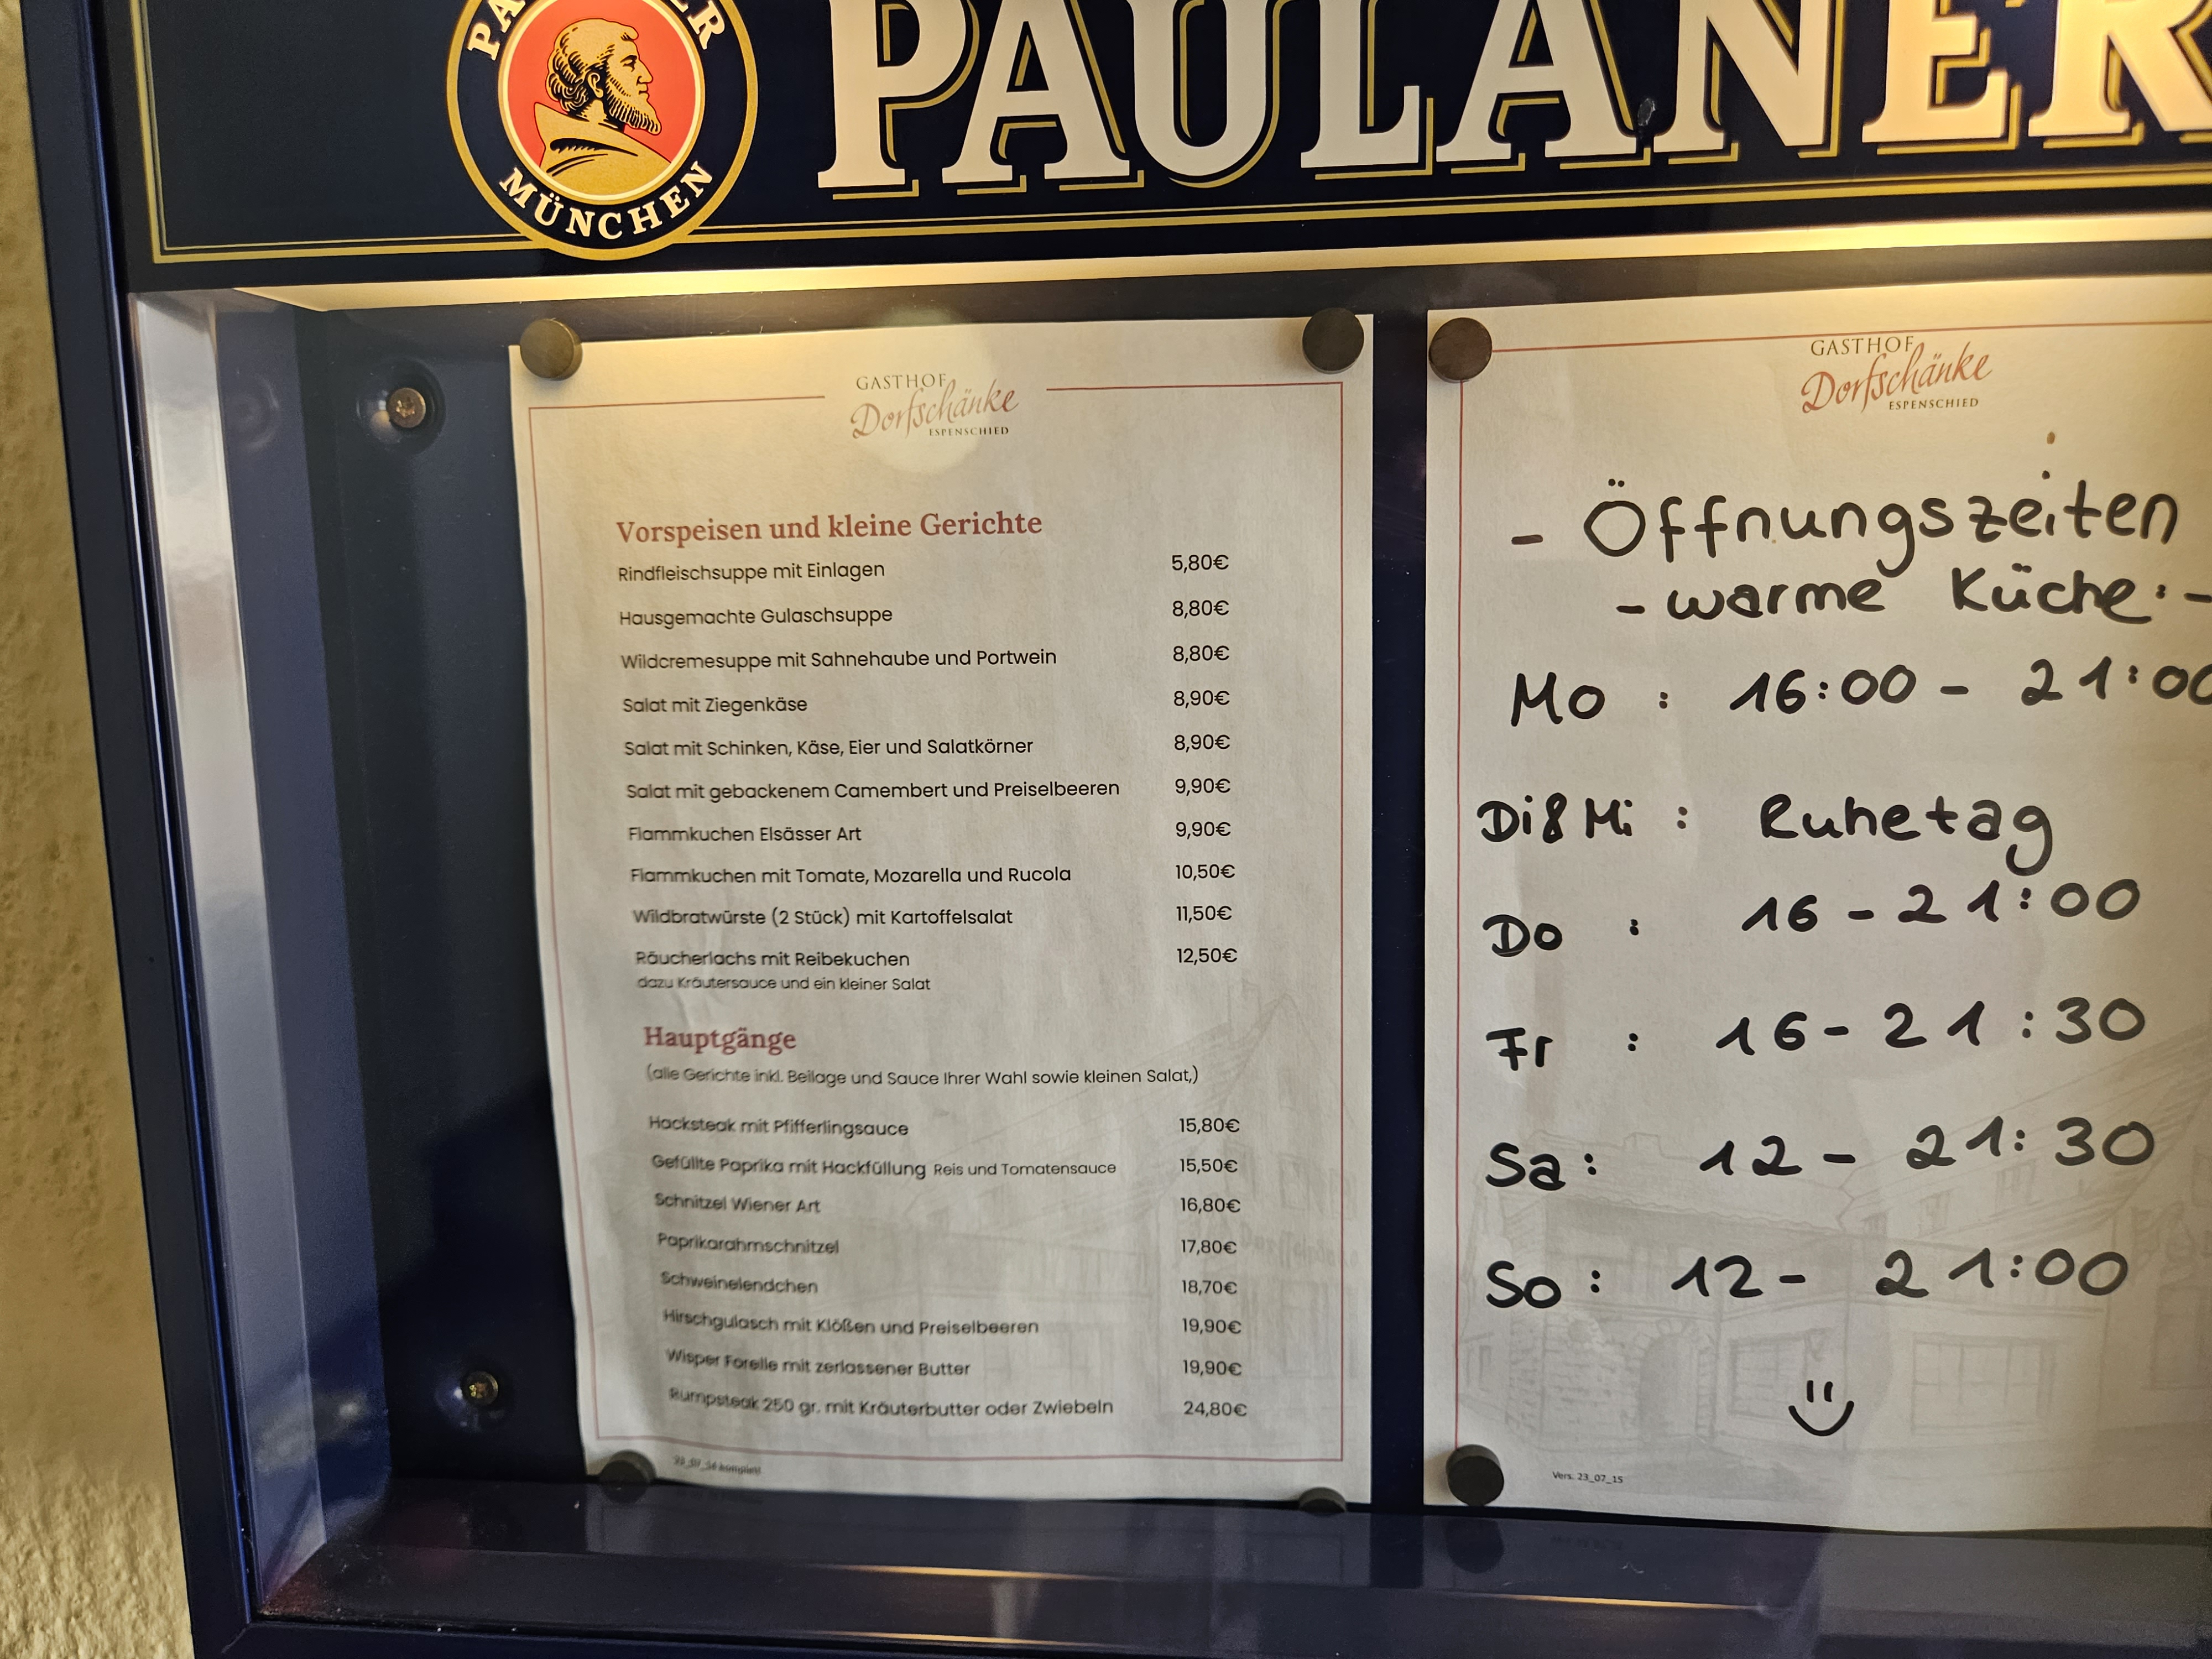 PAULANER
MÜNCHEN
GASTHOF
Dorfschänke
ESPENSCHIED
Vorspeisen und kleine Gerichte
Rindfleischsuppe mit Einlagen 5,80€
Hausgemachte Gulaschsuppe 8,80€
Wildcremesuppe mit Sahnehaube und Portwein 8,80€
Salat mit Ziegenkäse 8,90€
Salat mit Schinken, Käse, Eier und Salatkörner 8,90€
Salat mit gebackenem Camembert und Preiselbeeren 9,90€
Flammkuchen Elsässer Art 9,90€
Flammkuchen mit Tomate, Mozarella und Rucola 10,50€
Wildbratwürste (2 Stück) mit Kartoffelsalat 11,50€
Räucherlachs mit Reibekuchen 12,50€
dazu Kräutersauce und ein kleiner Salat
Hauptgänge
(alle Gerichte inkl. Beilage und Sauce Ihrer Wahl sowie kleinen Salat,)
Hacksteak mit Pfifferlingsauce 15,80€
Gefüllte Paprika mit Hackfüllung Reis und Tomatensauce 15,50€
Schnitzel Wiener Art 16,80€
Paprikarahmschnitzel 17,80€
Schweinelendchen 18,70€
Hirschgulasch mit Klößen und Preiselbeeren 19,90€
Wisper Forelle mit zerlassener Butter 19,90€
Rumpsteak 250 gr. mit Kräuterbutter oder Zwiebeln 24,80€
GASTHOF
Dorfschänke
ESPENSCHIED
- Öffnungszeiten
- warme Küche: -
Mo : 16:00 - 21:00
Di & Mi : Ruhetag
Do : 16 - 21:00
Fr : 16 - 21:30
Sa : 12 - 21:30
So : 12 - 21:00
Vers. 23_07_15